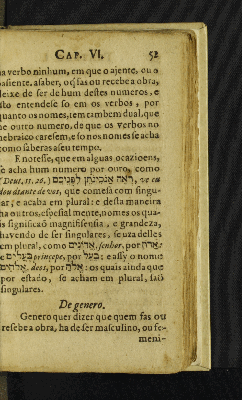 CAP. VI. 52
ha verbo ninhum, em que o ajente, ou o
pasiente. asaber, o q̃ fas ou recebe a obra,
deixe de ser de hum destes numeros, e
isto entendese so em os verbos, por
quanto os nomes, tem tambem dual, que
he outro numero, de que os verbos no
hebraico caresem, e so no nomes se acha
como saberas a seu tempo.
E notesse, que em alguas ocazioens,
se acha hum numero por outro, como
Deut. 11. 26. ראה אנכי נתן לפניכם, ve eu
dou diante de vos, que comesa com singu-
lar; e acaba em plural: e desta maneira
ha outros, espesialmente, nomes os qua-
is significaõ magnifisensia, e grandeza,
havendo de ser singulares, se uza delles
em plural, como אדונים, senhor, por אדון:
e בעלים prinsepe, por בעל: e assy o nome
אלהים, deos, por אלוה: os quais ainda que
por estado, se acham em plural, saõ
singulares.
De genero.
Genero quer dizer que quem fas ou
resebe a obra, ha de ser masculino, ou fe-
meni-